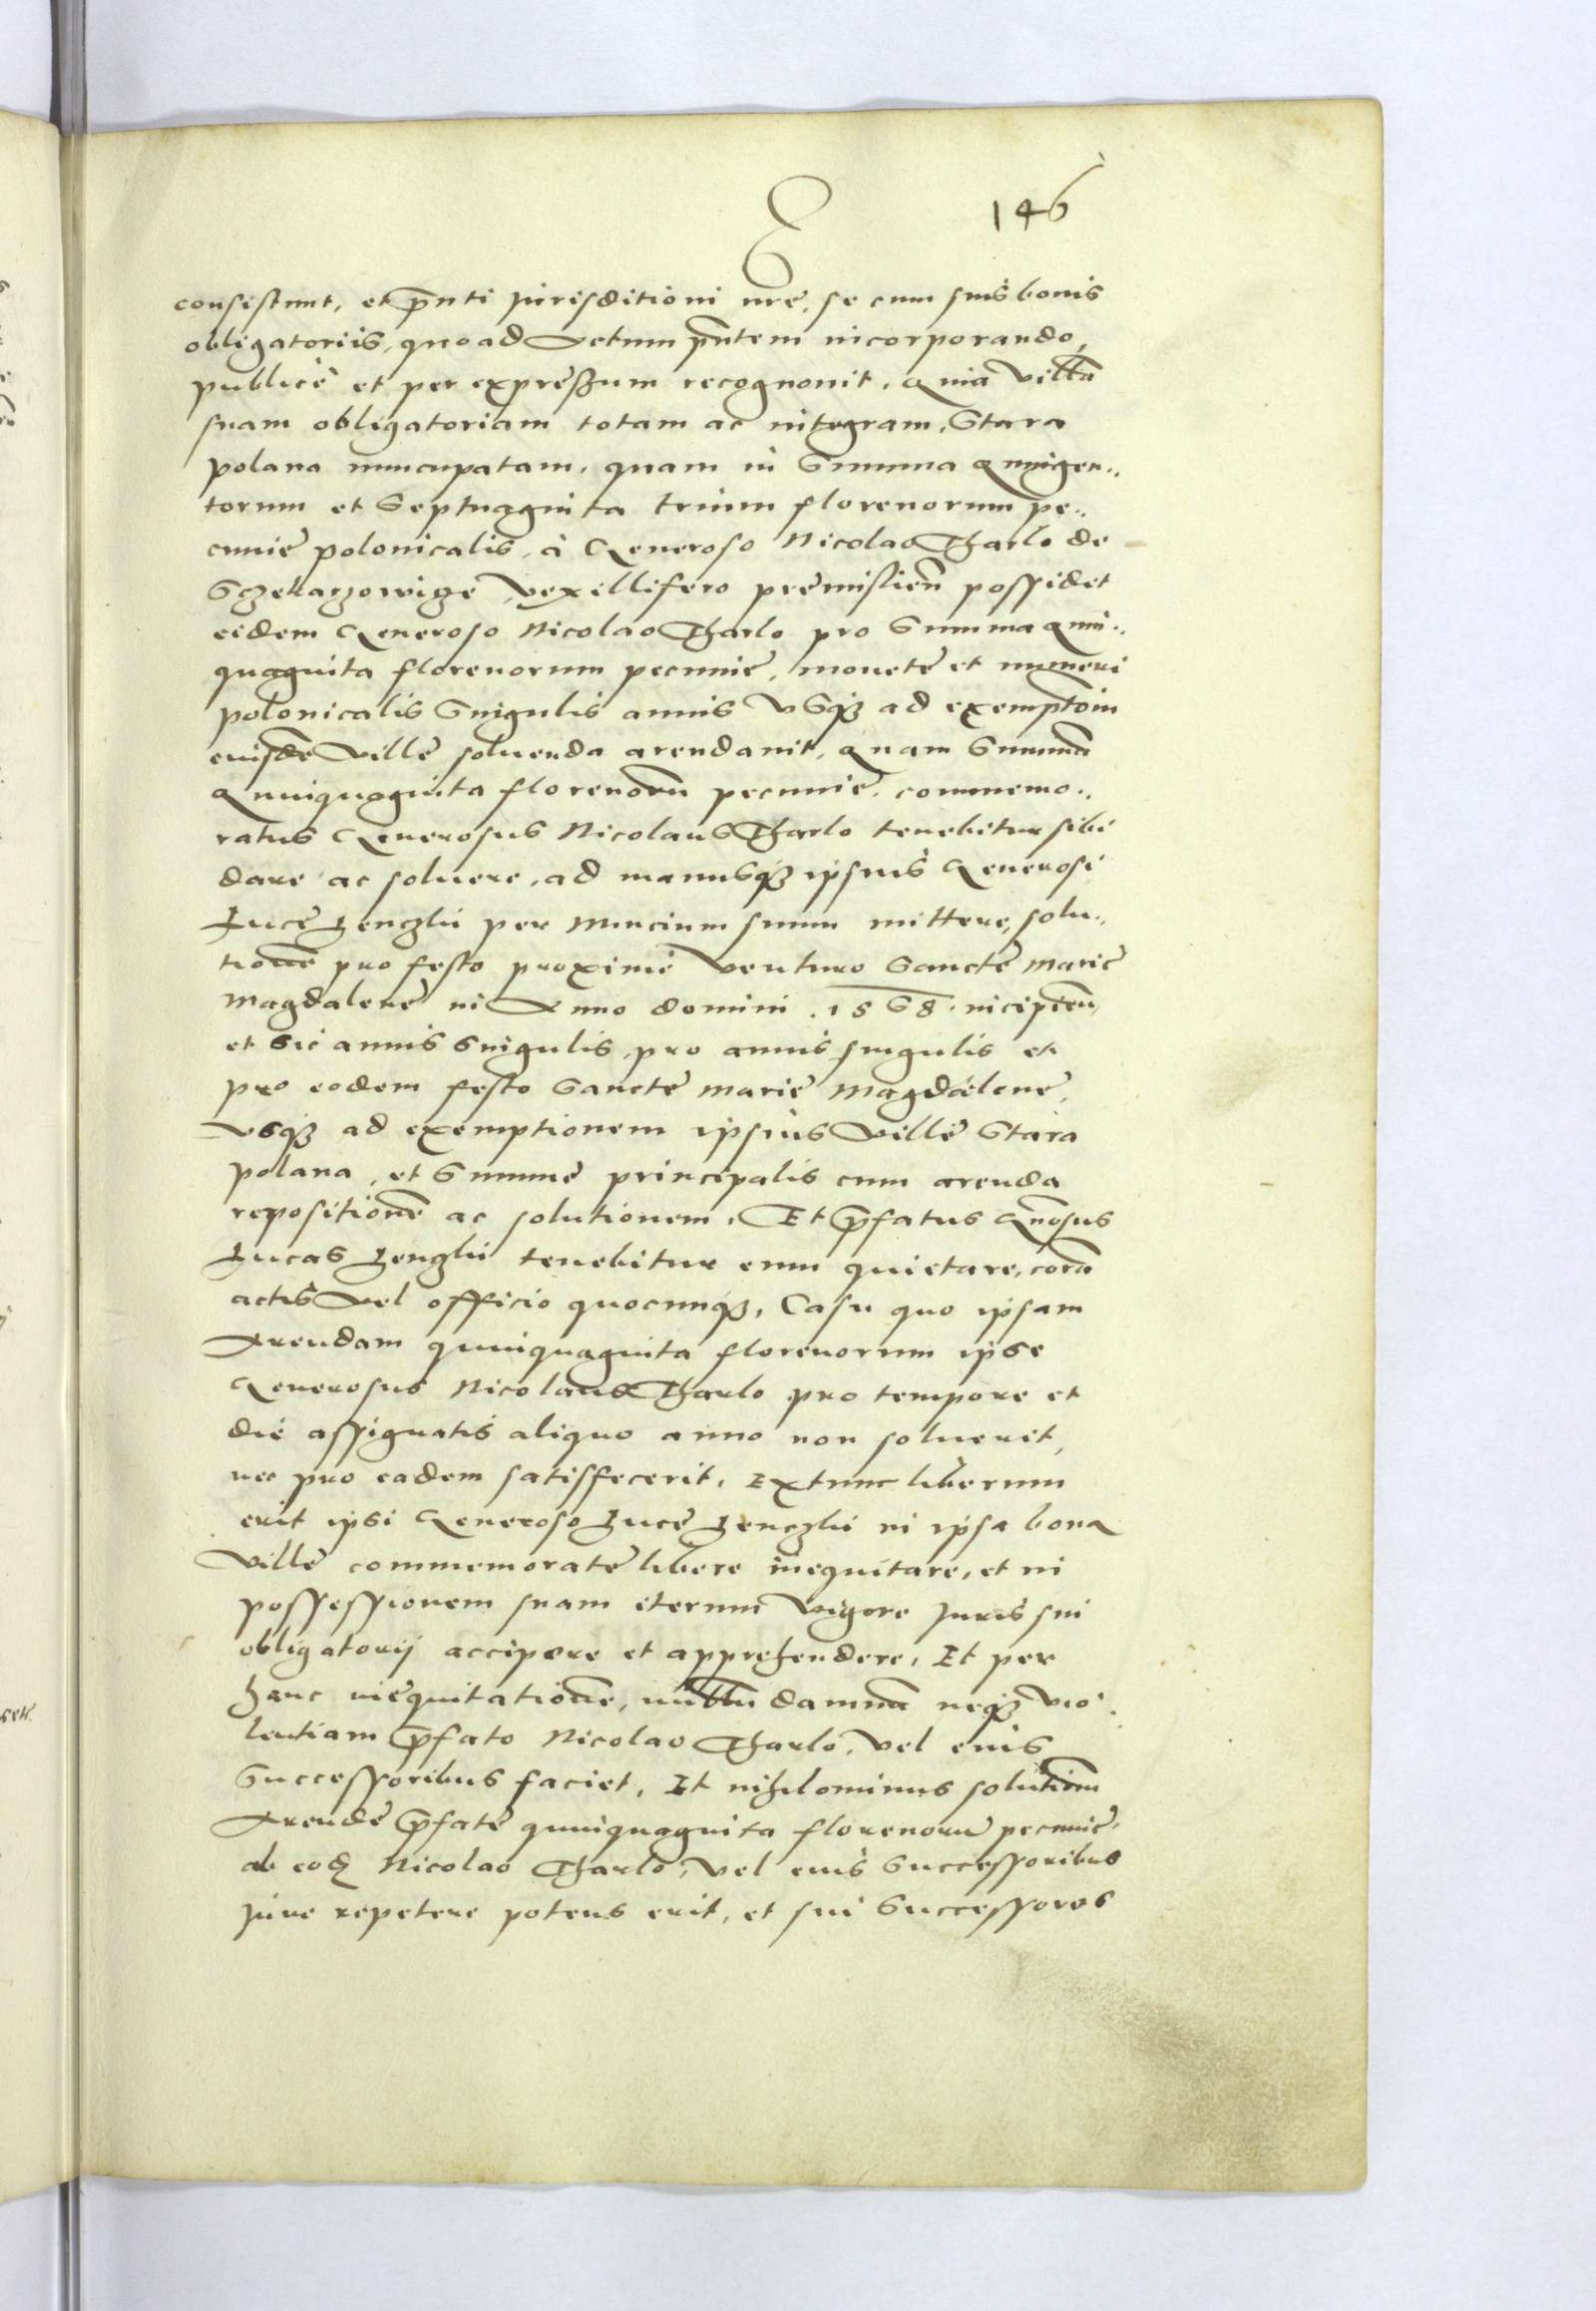 146
consistunt, et pñti Jurisditioni nrẽ, se cum suis bonis
obligatoriis, quoad Actum pñtem incorporando,
publicè et per expressum recognouit, Quia Villã
suam obligatoriam totam ac integram, Stara
polana nuncupatam, quam in Summa Quingen..
torum et Septuaginta trium florenorum pe..
cunie polonicalis, à Generoso Nicolao Tharlo de
Sczekarzowize Vexillifero premislieñ possidet
eidem Generoso Nicolao Tharlo pro Summa Quin..
quaginta florenorum pecunie, monete et numeri
polonicalis Singulis annis Vsq3 ad exemptoin
eiusdẽ Ville soluenda arendauit, Quam Summã
Quinquaginta florenorũ pecunie, commemo..
ratus Generosus Nicolaus Tharlo tenebitur sibi
dare ac soluere, ad manusq3 ipsius Generosi
Luce Zenczlii per Nuncium suum mittere, solu..
tionẽ pro festo proxime Venturo Sancte Marie
Magdalene in Anno domini . 1568 . incipień,
et sic annis singulis, pro annis singulis et
pro eodem festo Sancte Marie Magdalene,
Vsq3 ad exemptionem ipsius Ville Stara
polana, et Summe principalis cum arenda
repositionẽ ac solutionem, Et p̃fatus Gñosus
Lucas Zenczlii tenebitur eum quietare, corã
actis Vel officio quocunq3, Casu quo ipsam
Arendam quinquaginta florenorum ipse
Generosus Nicolaus Tharlo pro tempore et
die assignatis aliquo anno non solueret,
nec pro eadem satisfecerit, Extunc liberum
erit ipsi Generoso Luce Zenczlii in ipsa bona
Ville commemorate libere inequitare, et in
possessionem suam iterum Vigore Juris sui
obligatorij accipere et apprehendere, Et per
hanc inequitationẽ, nullũ damnũ neq3 vio..
lentiam p̃fato Nicolao Tharlo, Vel eius
Successoribus faciet, Et nihilominus solutiom̃
Arende p̃fate quinquaginta florenorũ pecunie,
ab eod̃ Nicolao Tharlo, Vel eius Successoribus
Jure repetere potens erit, et sui Successores